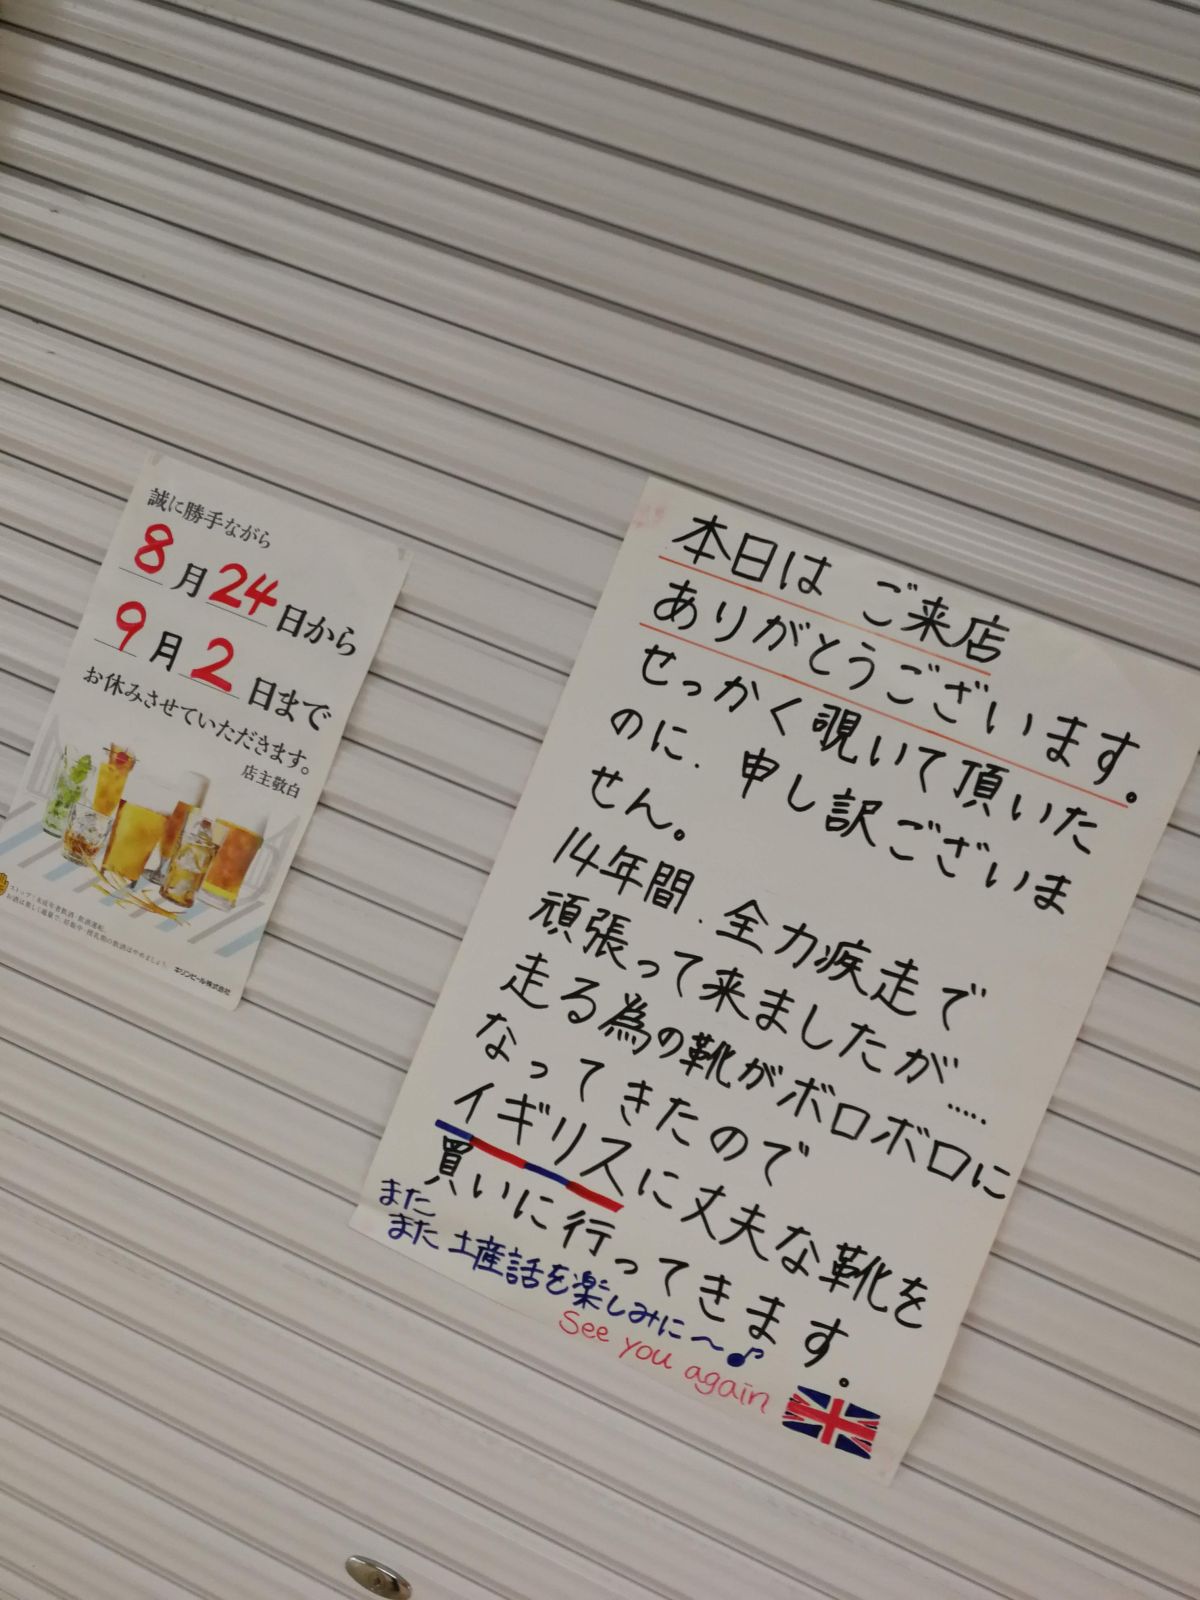 誠に勝手ながら
8月24日から
9月2日まで
お休みさせていただきます。
店主敬白
ストップ！未成年者飲酒・飲酒運転。
お酒は楽しく適量で。妊娠中・授乳期の飲酒はやめましょう。
キリンビール株式会社
本日は ご来店
ありがとうございます。
せっかく覗いて頂いた
のに、申し訳ございま
せん。
14年間、全力疾走で
頑張って来ましたが……
走る為の靴がボロボロに
なってきたので
イギリスに丈夫な靴を
買いに行ってきます。
また
また 土産話を楽しみに〜♪
See you again